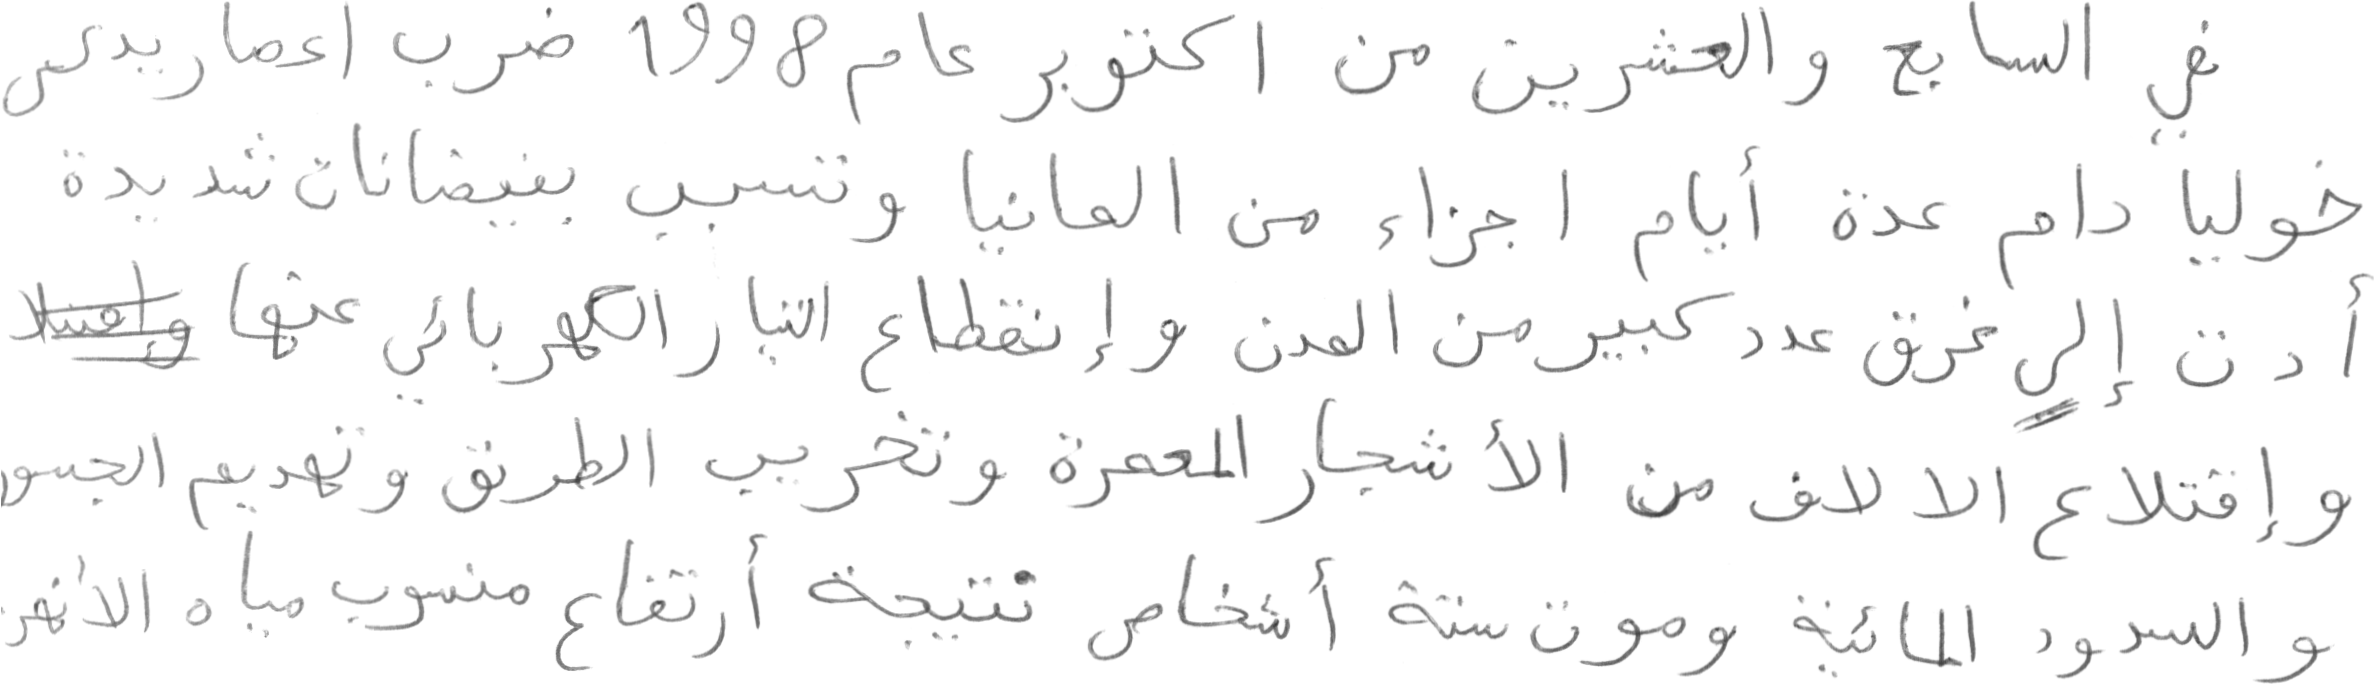 في السابع والعشرين من اكتوبر عام 1998 ضرب اعصار يدعى
خوليا دام عدة أيام اجزاء من المانيا وتسبب بفيضانات شديدة
أدت إلى غرق عدد كبير من المدن وإنقطاع التيار الكهربائي عنها
وإقتلاع الالاف من الأشجار المعمرة وتخريب الطرق وتهديم الجسور
والسدود المائية وموت ستة أشخاص نتيجة أرتفاع منسوب مياه الأنهر